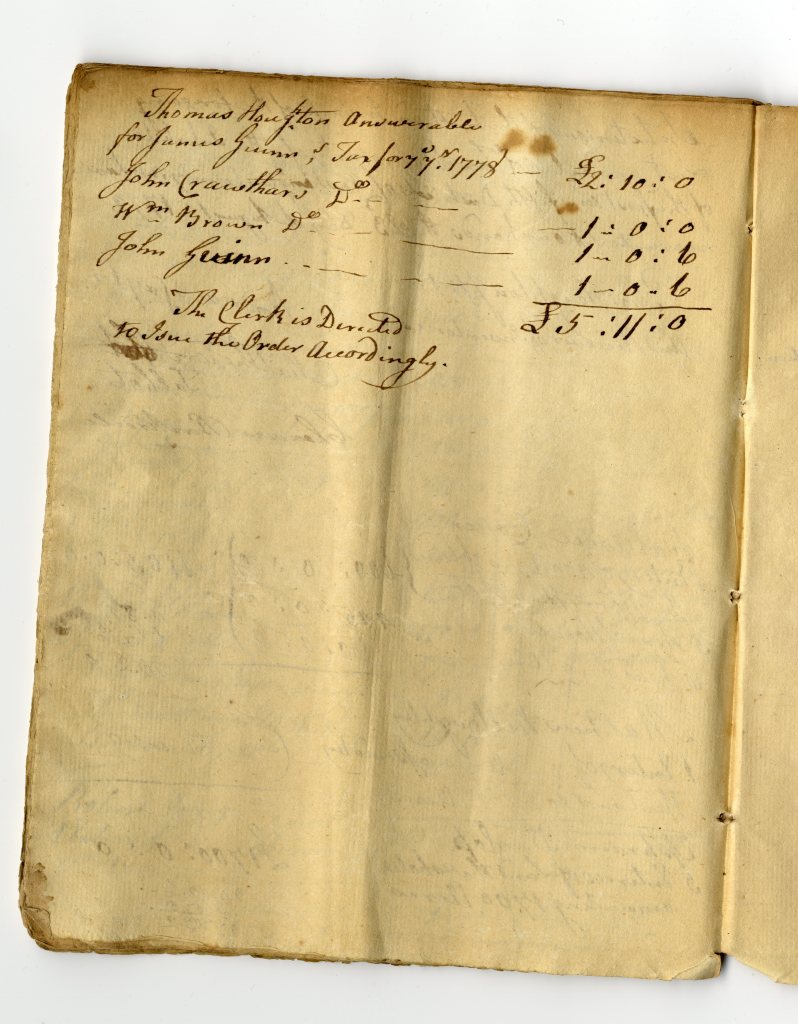 Thomas Houston Answerable
for James Guinn's Tax for ye Yr. 1778 — £2:10:0
John Crawthars Do. — — — 1:0:0
Wm Brown Do. — — — 1–0:6
John Guinn. — — — 1–0–6
£5:11:0
The Clerk is Directed
to Issue the Order Accordingly.